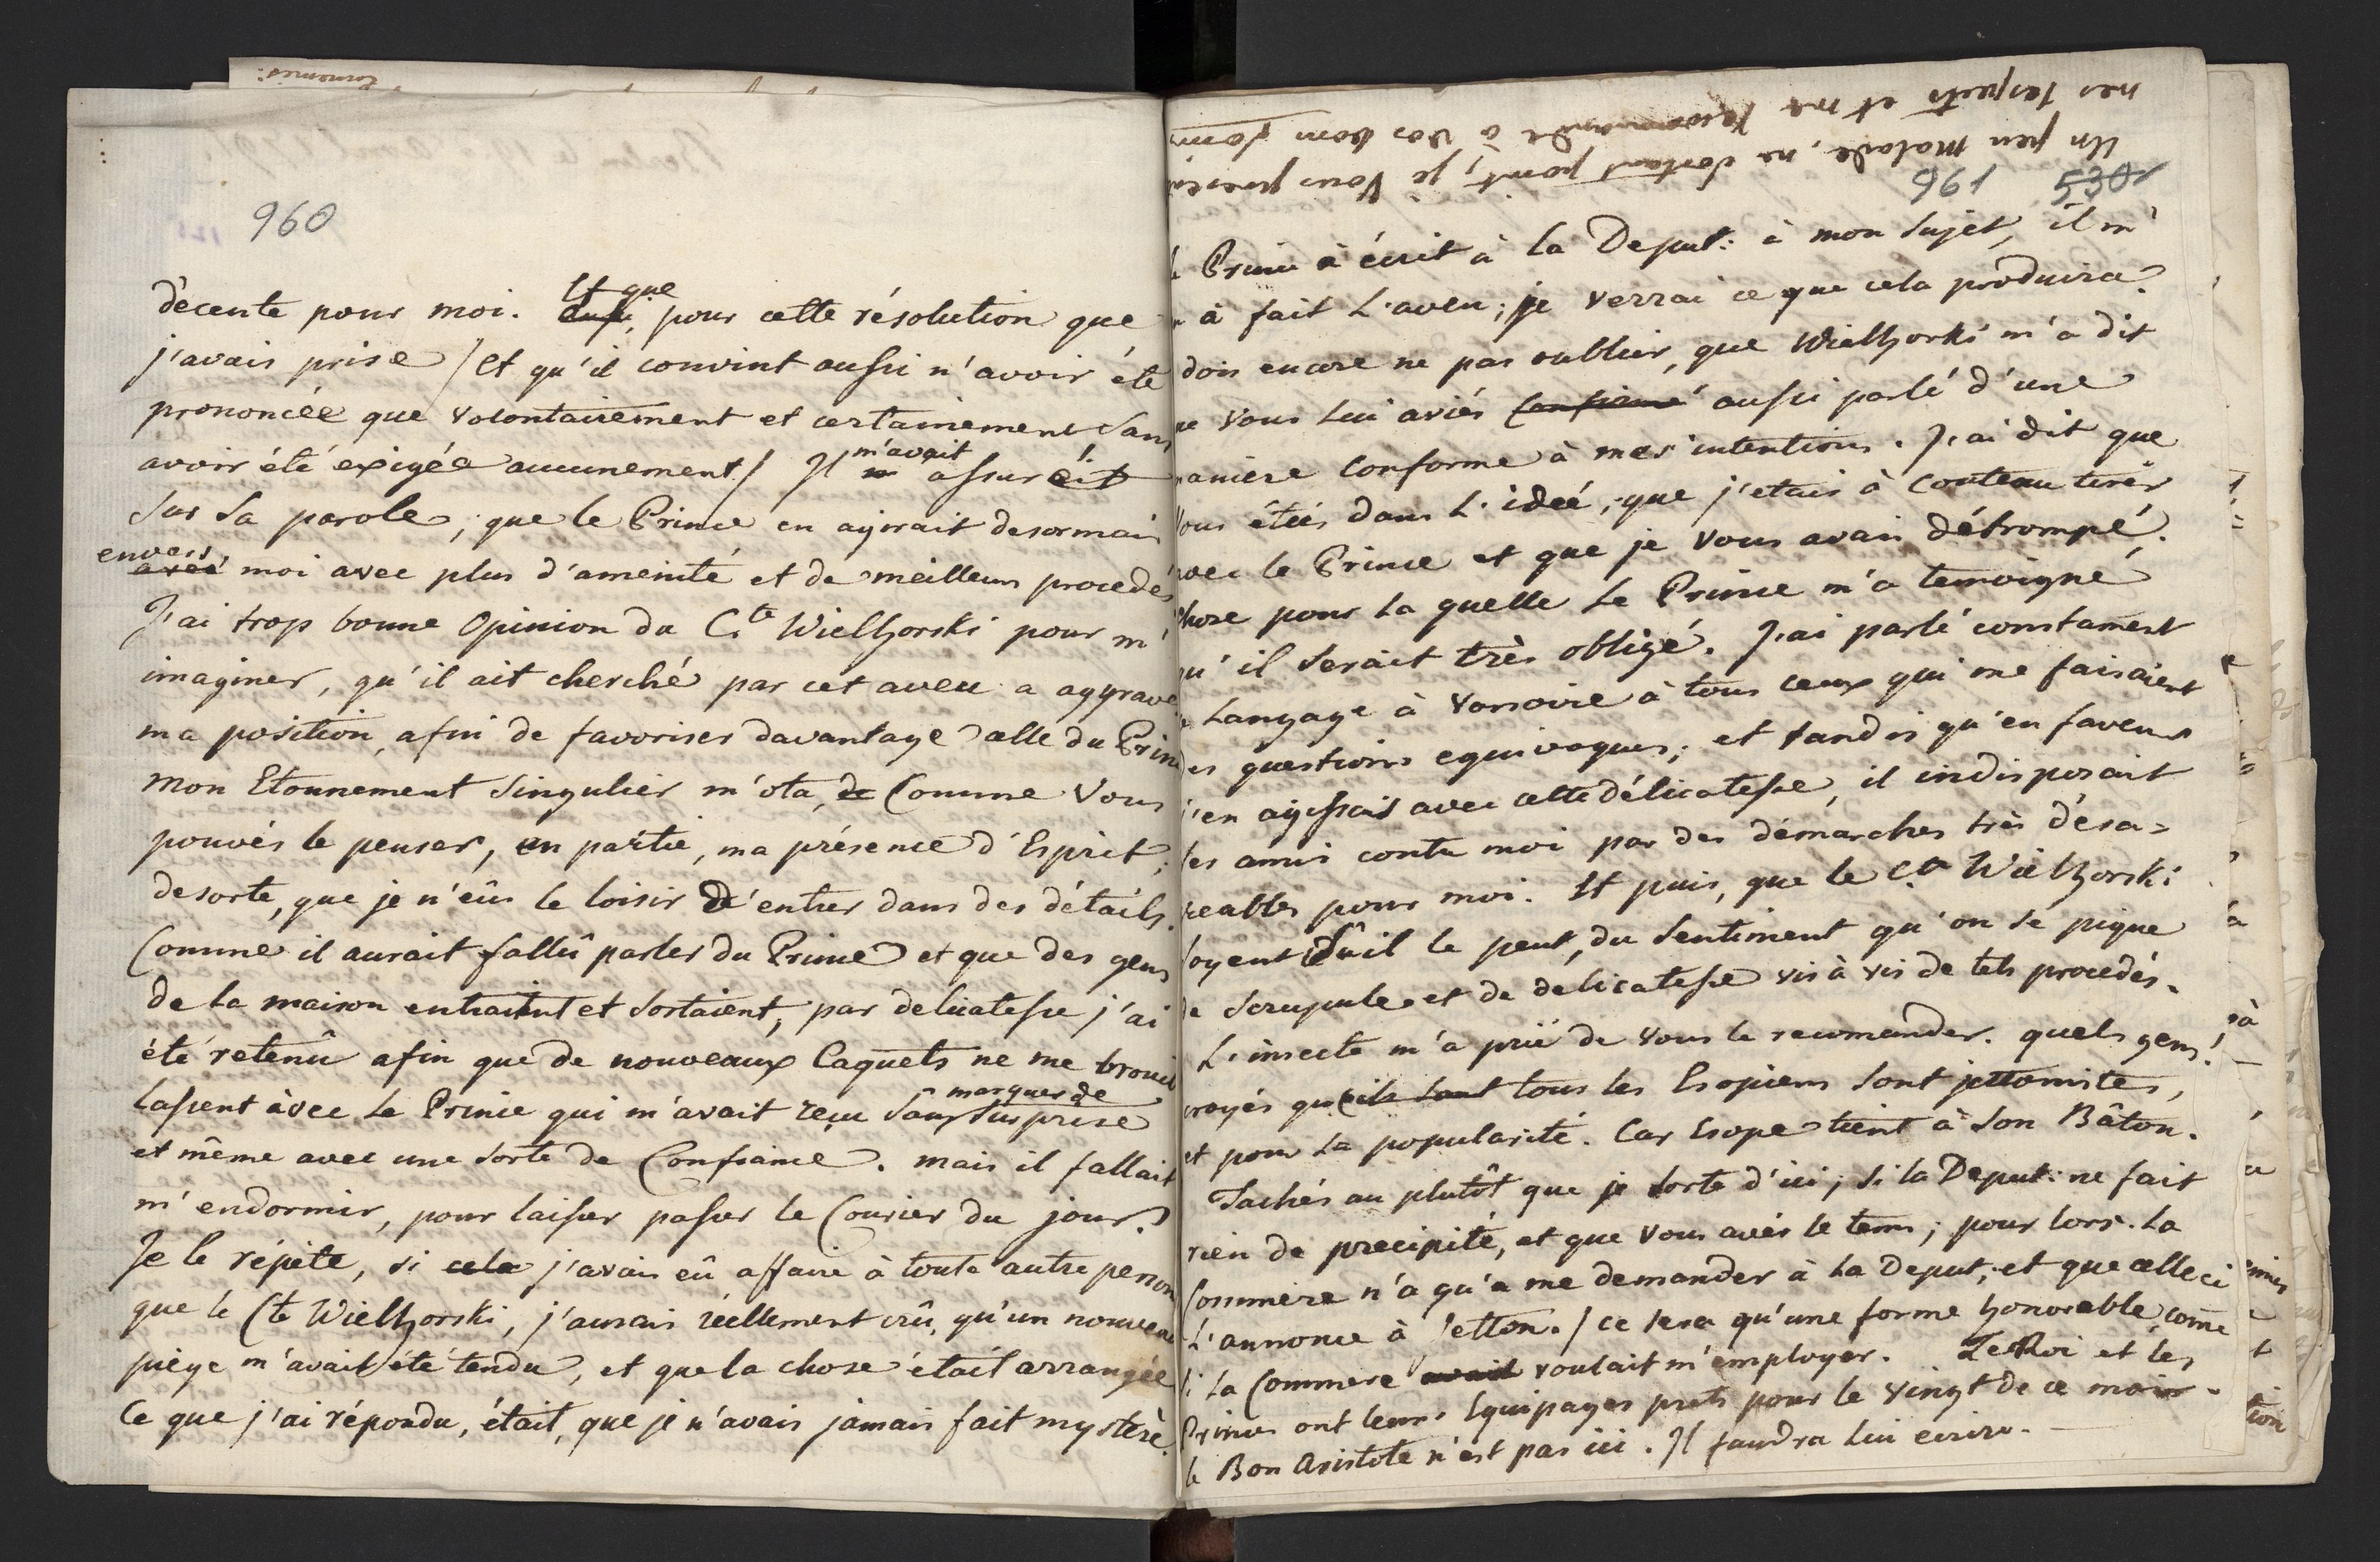 960
décente pour moi. Et que pour cette résolution que
j'avais prise / et qu'il convint aussi n'avoir été
prononcée que volontairement et certainement sans
avoir été exigée aucunement / Il m'avait assuré
sur sa parole, que le Prince en agirait desormais
envers moi avec plus d'ameinité et de meilleurs procedés
J'ai trop bonne Opinion du C.te Wielhorski pour m'
imaginer, qu'il ait cherché par cet aveu a aggraver
ma position, afin de favoriser davantage celle du Prin
Mon Etonnement singulier m'ota, de Comme Vous
pouvés le penser, en partie, ma présence d'Esprit;
desorte, que je n'eûs le loisir d'entrer dans des détails.
Comme il aurait fallû parler du Prince et que des gens
de la maison entraient et sortaient, par delicatesse j'ai
été retenû afin que de nouveaux Caquets ne me brouil
lassent avec le Prince qui m'avait reçu sans marquer de surprise
et même avec une sorte de Confiance. mais il fallait
m'endormir, pour laisser passer le Courier du jour.
Je le répète, si cela j'avais eû affaire à toute autre person
que le Cte Wielhorski, j'aurais réellement crû, qu'un nouveau
piège m'avait été tendu, et que la chose était arrangée
Ce que j'ai répondu, était, que je n'avais jamais fait mystère.
Un peu malade, ne sortant point, je Vous presen
mes respects et me recommande à vos bons soins
961 530
le Prince à écrit à la Deput: à mon sujet, il m'
à fait l'aveu; je verrai ce que cela produira.
dois encore ne pas oublier, que Wielhorski m'a dit
que Vous lui aviés Confirmé aussi parlé d'une
manière conforme à mes intentions. J'ai dit que
Vous étiés dans l'ideé, que j'etais à couteau tirér
avec le Prince et que je Vous avais détrompé.
chose pour la quelle le Prince m'a temoigné
qu'il serait très obligé. J'ai parlé constament
ce langage à Varsovie à tous ceux qui me faisaient
des questions equivoques; et tandis qu'en faveur
j'en agissais avec cette délicatesse, il indisposait
les amis contre moi par des démarches très désa=
reables pour moi. Et puis, que le C.te Wielhorski
soyent s'il le peut, du sentiment qu'on se pique
de scrupule et de delicatesse vis à vis de tels procedés.
L'insecte m'a prié de vous le recomander. quels gens!
croyés qu'ils sont tous les Esopiens sont jettonistes,
et pour la popularité. Car Esope tient à son Bâton.
Tachés au plutôt que je sorte d'ici; si la Deput: ne fait
rien de precipité, et que Vous avés le tems; pour lors. la
Commere n'a qu'a me demander à la Deput; et que celle ci
l'annonce à Jetton. / ce sera qu'une forme honorable, come
si la Commere avait voulait m'employer. Le Roi et les
Princes ont leurs Equipages prets pour le vingt de ce mois.
le Bon Aristote n'est pas ici. Il faudra lui ecrire.